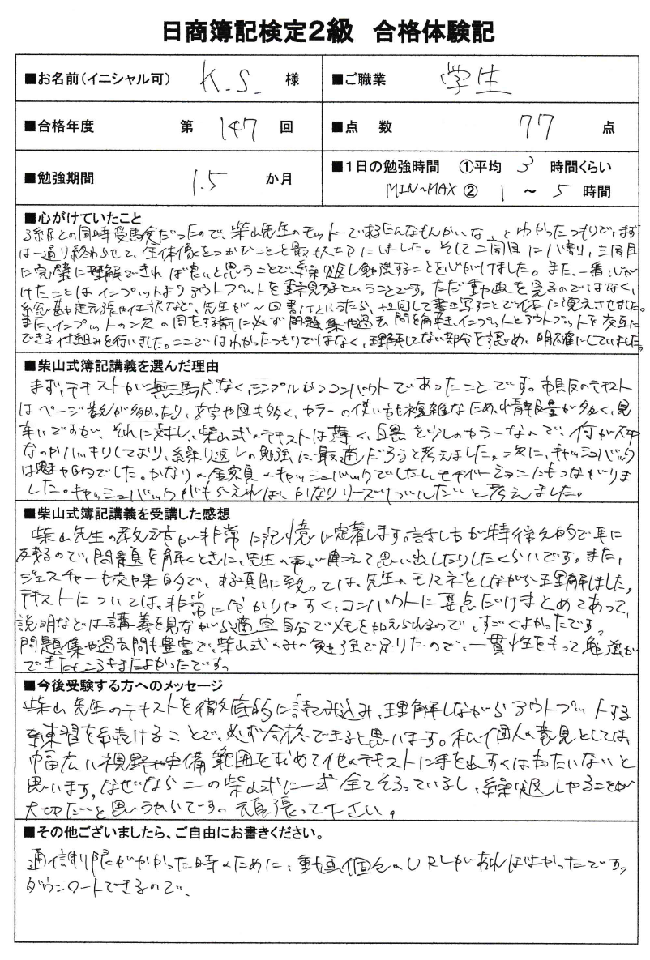 日商簿記検定2級 合格体験記
■お名前(イニシャル可) K.S. 様 ■ご職業 学生
■合格年度 第 147 回 ■点数 77 点
■勉強期間 1.5 か月 ■1日の勉強時間 ①平均 3 時間くらい
MIN〜MAX ② 1 〜 5 時間
■心がけていたこと
3級との同時受験だったので、柴山先生のモットーである「こんなもんかいな」とわかったつもりで、まず
は一通り終わらせて、全体像をつかむことを最優先にしました。そして二周目に八割、三周目
に完璧に理解できれば良いと思うことで、繰り返し勉強することを心がけました。また、一番心が
けたことはインプットよりアウトプットを重視するということです。ただ動画を見るのではなく、
先生が 書けといったら、 して 書き写すことで体に覚えさせました。
また、インプットの次の周をする前に必ず問題集や過去問を解き、インプットとアウトプットを交互に
できる仕組みを行いました。ここではわかったつもりではなく、理解してない部分を認め、明確にしていました。
■柴山式簿記講義を選んだ理由
まず、テキストが無駄がなくシンプルかつコンパクトであったことです。市販のテキスト
はページ数が多かったり、文字や図も多く、カラーの使いも複雑なため、情報量が多く、見
辛いですが、それに対し、柴山式のテキストは薄く、白黒を 少しのカラーなので、何が大切
なのかハッキリしており、繰り返しの勉強に最適だろうと考えました。次に、キャッシュバック
は魅力的でした。かなりの金額 キャッシュバックでしたし、モチベーションにもつながりま
した。キャッシュバックがもらえれば、かなりリーズナブルだと考えました。
■柴山式簿記講義を受講した感想
柴山先生の教え方が非常に記憶に定着します。話し方が特徴的で耳に
残るので、問題を解くときに、先生の声が聞こえて思い出したりしたくらいです。また、
ジェスチャーも効果的で、ある項目に至っては、先生のモノマネをしながら理解しました。
テキストについては、非常に分かりやすく、コンパクトに要点だけまとめてあって、
説明などでは講義を見ながら適宜自分でメモを加えられるので、すごくよかったです。
問題集や過去問も豊富で、柴山式のみの勉強で足りたので、一貫性をもって勉強が
できたところもまたよかったです。
■今後受験する方へのメッセージ
柴山先生のテキストを徹底的に読み込み、理解しながらアウトプットする
練習を続けることで、必ず合格できると思います。私個人の意見としては
幅広い視野や 範囲を求めて他のテキストに手を出すべきはないと
思います。なぜならこの柴山式に一式全てそろっているし、繰り返しやることが
大切だと思うからです。頑張って下さい。
■その他ございましたら、ご自由にお書きください。
通信制限がかかった時のために、動画個々のURLがあればよかったです。
ダウンロードできるので、